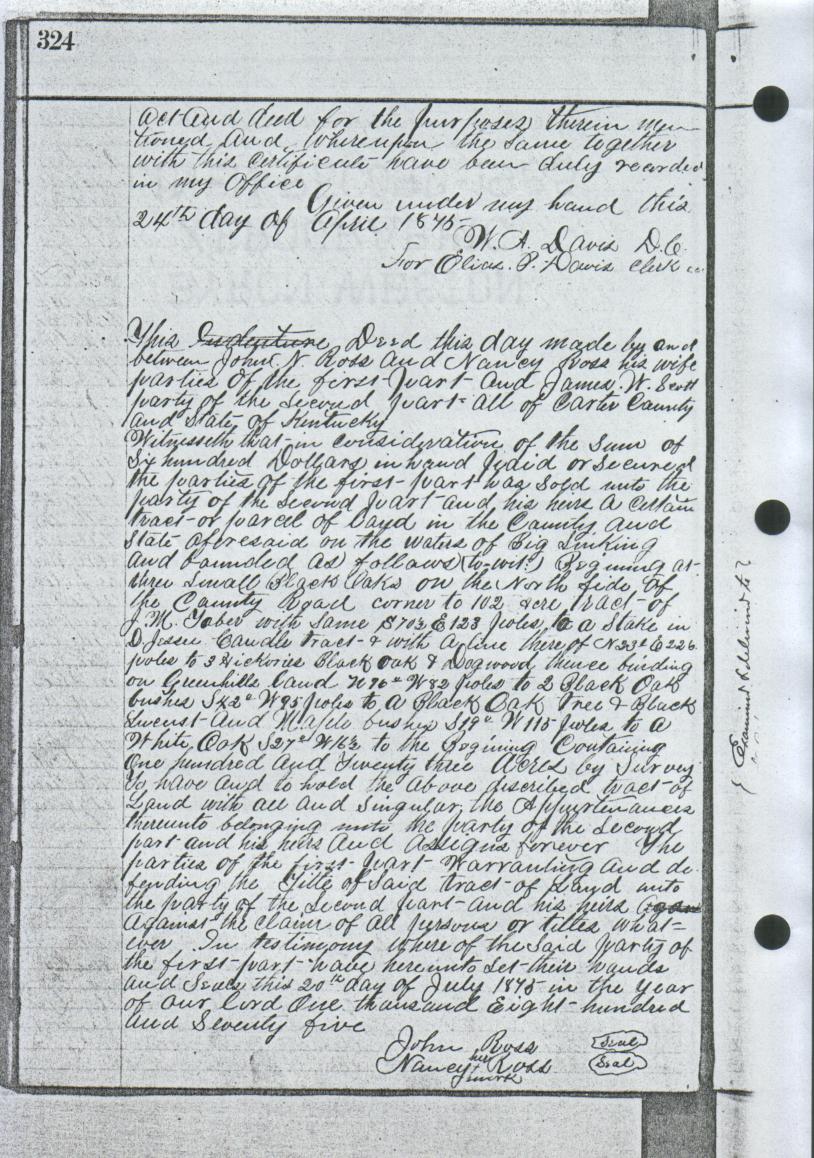 324
act and deed for the purposes therein men
tioned and whereupon the same together
with this certificate have been duly recorded
in my Office
Given under my hand this
24th day of April 1875
W. A. Davis D.C.
For Elias. P. Davis Clerk
This Indenture Deed this day made by and
between John N. Ross and Nancy Ross his wife
parties of the first part and James. W. Scott
party of the second part all of Carter County
and State of Kentucky
Witnesseth that in consideration of the sum of
Six hundred Dollars in hand paid or secured
the parties of the first part was sold unto the
party of the second part and his heirs a certain
tract or parcel of land in the County and
State aforesaid on the waters of Big Sinking
and bounded as follows (to-wit.) Begining at
three small Black Oaks on the North side of
the County Road corner to 102 acre tract of
J. M. with same S 70 1/2 E 123 poles to a Stake in
D. Jesse Caudle tract & with a line there of E 226
poles to 3 Hickories Black oak & Dogwood thence binding
on Greenhills land W 82 poles to 2 Black Oak
bushes W 95 poles to a Black Oak Tree & Black
and Maple bushes S 19 W 115 poles to a
White Oak S 27 to the Begining Containing
One hundred and Twenty three Acres by Survey
To have and to hold the above discribed tract of
Land with all and singular, the Appurtenances
thereunto belonging unto the party of the second
part and his heirs and assigns forever The
parties of the first part Warranting and de
fending the Title of Said tract of Land unto
the party of the second part and his heirs agan
Against the claim of all persons or titles what=
ever In testimony where of the said party of
the first part have hereunto set their hands
and Seals this 20th day of July 1875 in the year
of our Lord One thousand Eight hundred
and Seventy five
John Ross Seal
Nancy her Ross Seal
mark
Examined & delivered to